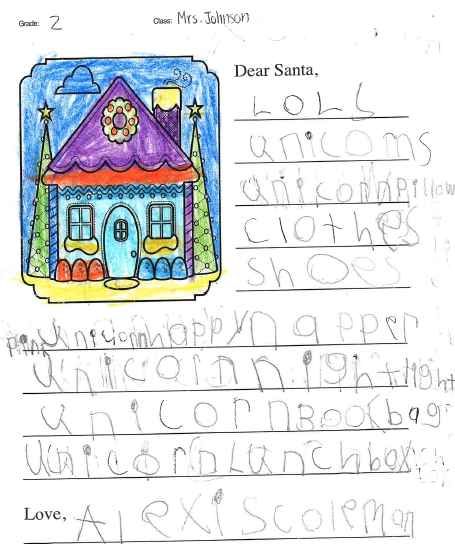 Grade: 2 Class: Mrs. Johnson
Dear Santa,
LOLS
unicorns
unicornpillow
clothes
shoes
Pink unicornhappynapper
unicornnightlight
unicornBookbag
unicornLunchbox
Love, Alexis coleman